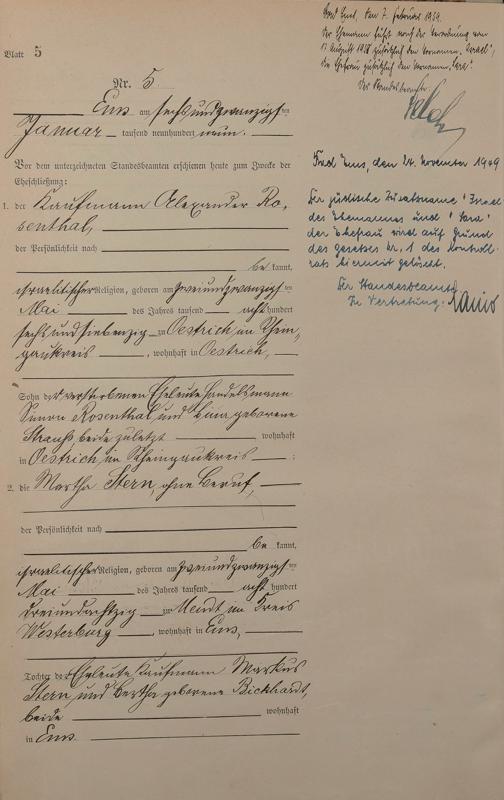 Blatt 5
Nr. 5.
Ems am sechsundzwanzigsten
Januar tausend neunhundert neun.
Vor dem unterzeichneten Standesbeamten erschienen heute zum Zwecke der
Eheschließung:
1. der Kaufmann Alexander Ro-
senthal,
der Persönlichkeit nach
be kannt,
israelitischer Religion, geboren am zweiundzwanzigsten
Mai des Jahres tausend acht hundert
sechsundsiebenzig zu Oestrich im Rhein-
gaukreis, wohnhaft in Oestrich,
Sohn der verstorbenen Eheleute Handelsmann
Simon Rosenthal und Lina geborene
Strauß, beide zuletzt wohnhaft
in Oestrich im Rheingaukreis;
2. die Martha Stern, ohne Beruf,
der Persönlichkeit nach
be kannt,
israelitischer Religion, geboren am zweiundzwanzigsten
Mai des Jahres tausend acht hundert
dreiundachtzig zu Nendt im Kreis
Westerburg, wohnhaft in Ems,
Tochter der Eheleute Kaufmann Markus
Stern und Bertha geborene Bickhardt,
beide wohnhaft
in Ems.
Bad Ems, den 7. Februar 1939.
Der Ehemann führt nach der Verordnung vom
17. August 1938 zusätzlich den Vornamen "Israel",
die Ehefrau zusätzlich den Vornamen "Sara".
Der Standesbeamte
Bad Ems, den 24. November 1949
Der jüdische Zusatzname "Israel
des Ehemannes und "Sara"
der Ehefrau wird auf Grund
des Gesetzes Nr. 1 des Kontroll-
rats hiermit gelöscht.
Der Standesbeamte
In Vertretung: